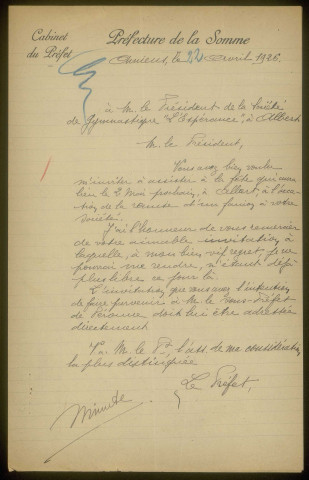 Cabinet
du Préfet
Préfecture de la Somme
Amiens, le 22 avril 1926.
à M. le Président de la Société
de Gymnastique "L'Espérance", à Albert
M. le Président,
Vous avez bien voulu
m'inviter à assister à la fête qui aura
lieu le 2 Mai prochain, à Albert à l'occa-
sion de la remise d'un fanion à votre
Société.
J'ai l'honneur de vous remercier
de votre aimable invitation à
laquelle, à mon bien vif regret, je ne
pourrai me rendre, n'étant déjà
plus libre ce jour-là.
L'invitation que vous avez l'intention
de faire parvenir à M. le Sous-Préfet
de Péronne doit lui être adressée
directement.
M. le P., l'ass. de ma considération
la plus distinguée
Le Préfet,
Minute